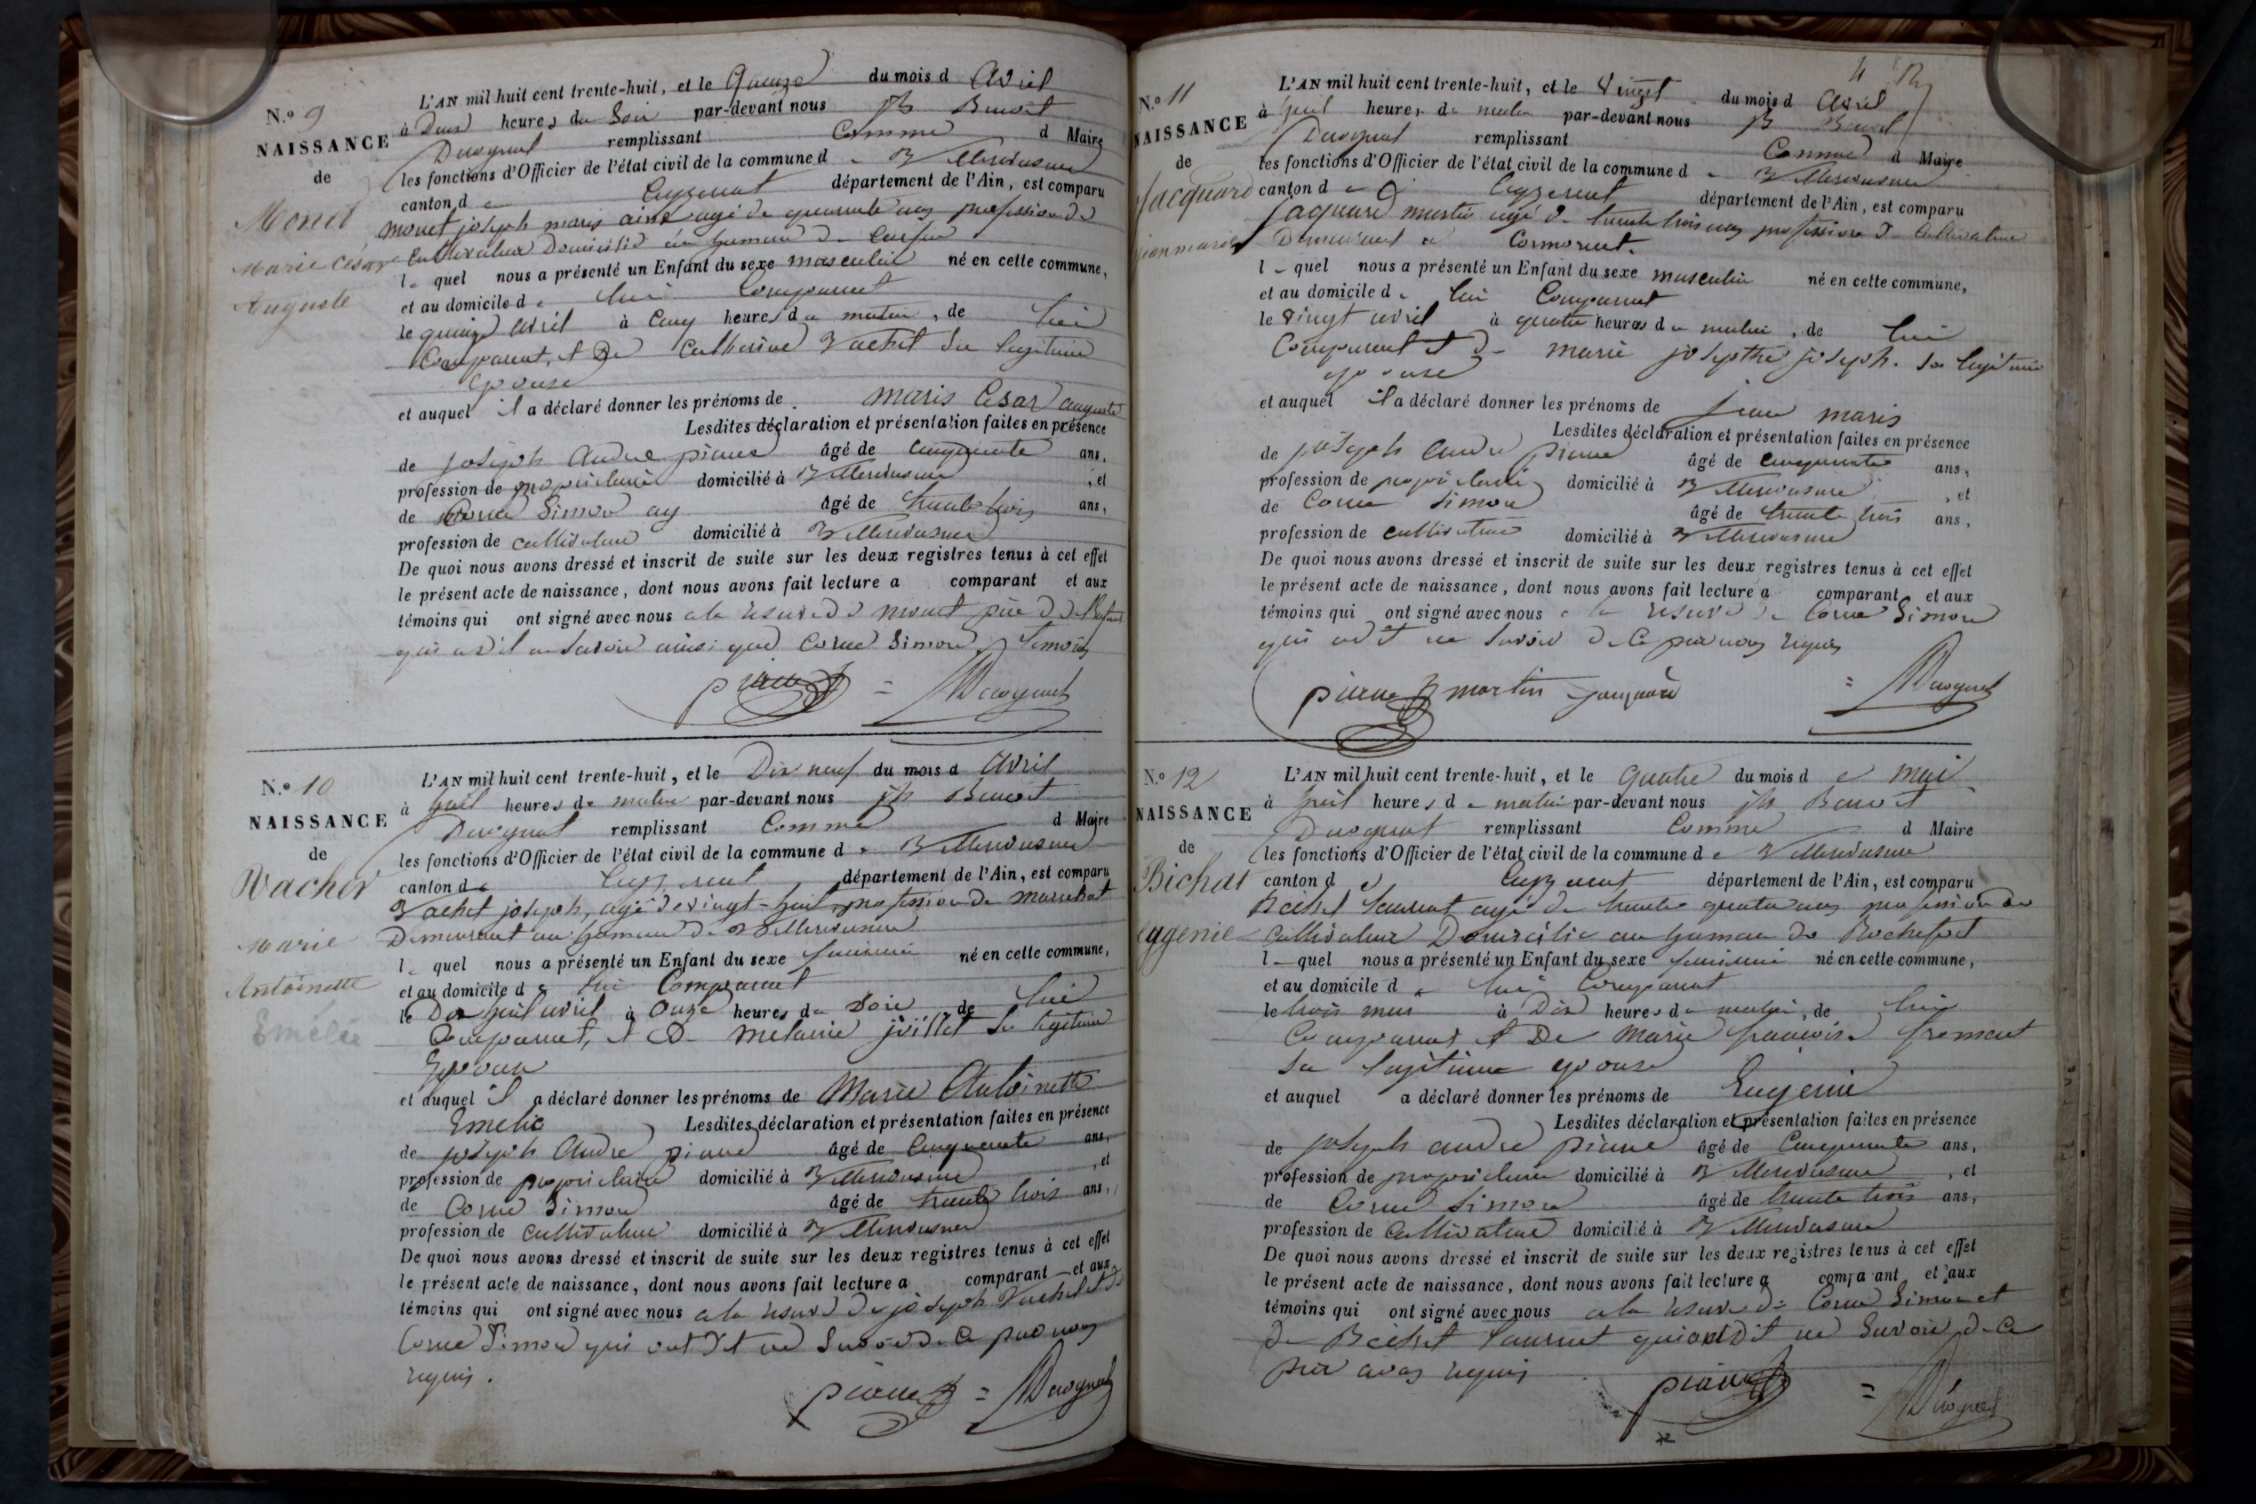 N.o 9
NAISSANCE
de
Monet
Marie César
Auguste
L'AN mil huit cent trente-huit, et le Quinze du mois d Avril
à Deux heures du Soir par-devant nous Jh Benoit
Duvignat remplissant Comme d Maire
les fonctions d'Officier de l'état civil de la commune d
canton d département de l'Ain, est comparu
monet joseph marie ainé agé de quarante ans profession de
cultivateur Domicilié hameau de
l quel nous a présenté un Enfant du sexe masculin né en cette commune,
et au domicile d lui Comparant
le quinze avril à Cinq heures du matin, de lui
Comparant, et De Catherine Vachet Sa légitime
epouse
et auquel il a déclaré donner les prénoms de marie Cesar auguste
Lesdites déclaration et présentation faites en présence
de joseph André pianne âgé de cinquante ans,
profession de propriétaire domicilié à Villereversure, et
de Corne Simon âgé de trente trois ans,
profession de cultivateur domicilié à Villereversure
De quoi nous avons dressé et inscrit de suite sur les deux registres tenus à cet effet
le présent acte de naissance, dont nous avons fait lecture a comparant et aux
témoins qui ont signé avec nous a la reserve de monet père
qui a dit ne savoir ainsi que Corne Simon témoin
N.o 10
NAISSANCE
de
Vachet
Marie
Antoinette
Emélie
L'AN mil huit cent trente-huit, et le Dix neuf du mois d Avril
à huit heures du matin par-devant nous jh Benoit
Duvignat remplissant Comme d Maire
les fonctions d'Officier de l'état civil de la commune d Villereversure
canton d département de l'Ain, est comparu
Vachet joseph, agé de vingt-huit profession de marechal
Demeurant au hameau de Villereversure
l quel nous a présenté un Enfant du sexe feminin né en cette commune,
et au domicile d lui Comparant
le Dix huit avril à Onze heures du Soir, de lui
Comparant, et De melanie juillet Sa legitime
Epouse
et auquel il a déclaré donner les prénoms de Marie Antoinette
Emelie Lesdites déclaration et présentation faites en présence
de joseph André pianne âgé de Cinquante ans,
profession de propriétaire domicilié à Villereversure, et
de Corne Simon âgé de trente trois ans,
profession de cultivateur domicilié à Villereversure
De quoi nous avons dressé et inscrit de suite sur les deux registres tenus à cet effet
le présent acte de naissance, dont nous avons fait lecture a comparant et aux
témoins qui ont signé avec nous a la reserve de joseph Vachet et
Corne Simon qui ont dit ne Savoir de Ce par nous
requis.
N.o 11
NAISSANCE
de
Jacquard
jean marie
L'AN mil huit cent trente-huit, et le Vingt du mois d Avril
à huit heures du matin par-devant nous Jh Benoit
Duvignat remplissant Comme d Maire
les fonctions d'Officier de l'état civil de la commune d Villereversure
canton d département de l'Ain, est comparu
Jaquard martin agé de trente trois ans profession de Cultivateur
Demeurant a Cormorent.
l quel nous a présenté un Enfant du sexe masculin né en cette commune,
et au domicile d lui Comparant
le vingt avril à quatre heures du matin, de lui
Comparant et De marie josephte joseph. Sa legitime
epouse
et auquel il a déclaré donner les prénoms de jean marie
Lesdites déclaration et présentation faites en présence
de joseph André pianne âgé de cinquante ans,
profession de propriétaire domicilié à Villereversure, et
de Corne Simon âgé de trente trois ans,
profession de cultivateur domicilié à Villereversure
De quoi nous avons dressé et inscrit de suite sur les deux registres tenus à cet effet
le présent acte de naissance, dont nous avons fait lecture a comparant et aux
témoins qui ont signé avec nous a la reserve de Corne Simon
qui a dit ne Savoir de Ce par nous requis
martin jaquard
N.o 12
NAISSANCE
de
Bichat
eugenie
L'AN mil huit cent trente-huit, et le Quatre du mois d e Mai
à huit heures du matin par-devant nous jh Benoit
Duvignat remplissant Comme d Maire
les fonctions d'Officier de l'état civil de la commune d Villereversure
canton d département de l'Ain, est comparu
Laurent agé de trente quatre ans profession de
Cultivateur Domicilié au hameau de Rochefort
l quel nous a présenté un Enfant du sexe feminin né en cette commune,
et au domicile d lui Comparant
le trois mai à Dix heures du matin, de lui
Comparant et De Marie françoise froment
Sa legitime epouse
et auquel a déclaré donner les prénoms de Eugenie
Lesdites déclaration et présentation faites en présence
de joseph andré pianne âgé de Cinquante ans,
profession de propriétaire domicilié à Villereversure, et
de Corne Simon âgé de trente trois ans,
profession de Cultivateur domicilié à Villereversure
De quoi nous avons dressé et inscrit de suite sur les deux registres tenus à cet effet
le présent acte de naissance, dont nous avons fait lecture a comparant et aux
témoins qui ont signé avec nous a la reserve de Corne Simon et
de Laurent qui ont Dit ne Savoir de Ce
par nous requis